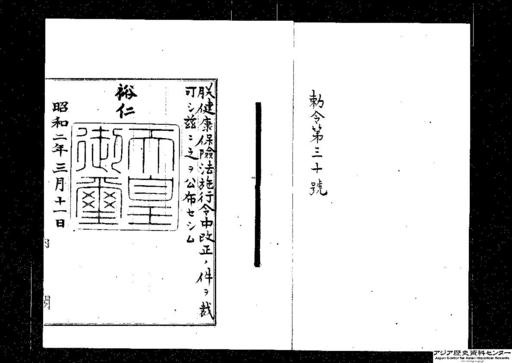 勅令第三十號
朕健康保險法施行令中改正ノ件ヲ裁
可シ茲ニ之ヲ公布セシム
裕仁
天皇
御璽
昭和二年三月十一日
アジア歴史資料センター
Japan Center for Asian Historical Records